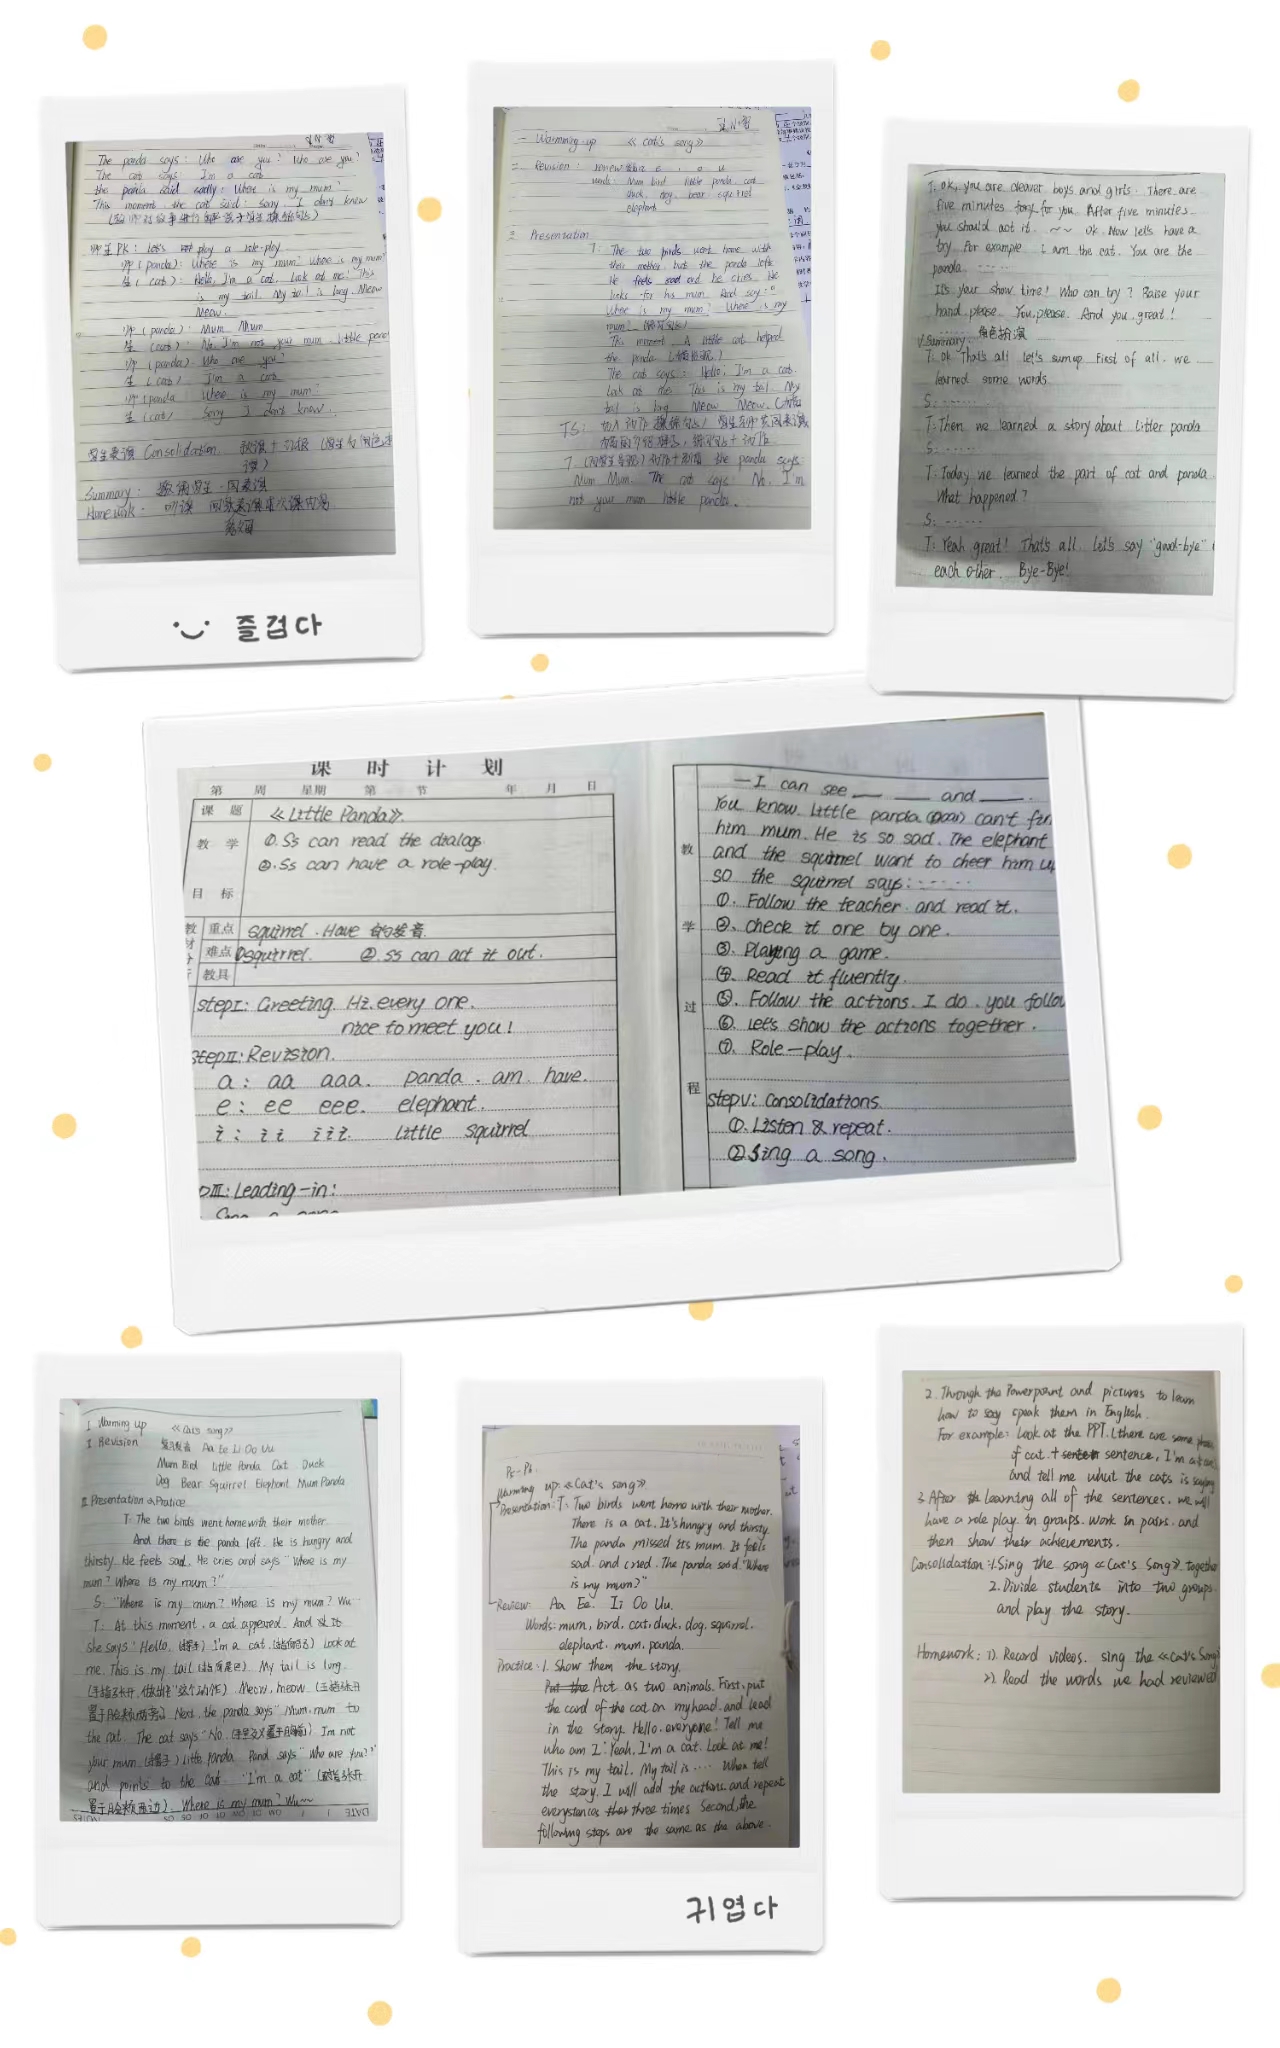 The panda says: Who are you? Who are you?
The cat says: I'm a cat
the panda said sadly: Where is my mum?
This moment, the cat said: sorry, I don't know
师生PK: Let's play a role-play.
师(panda): Where is my mum? Where is my mum?
生(cat): Hello, I'm a cat. Look at me! This
is my tail. My tail is long. Meow
Meow.
师(panda): Mum Mum
生(cat): No I'm not you mum. Little panda
师(panda): Who are you?
生(cat): I'm a cat.
师(panda Where is my mum?
生(cat) Sorry I don't know.
学生表演 Consolidation.
Summary: 邀请学生一同表演
Homework:
즐겁다
一 Warming-up 《cat's song》
二 Revision: review
words: Mum bird little panda cat
duck dog bear squirrel
elephant
三 Presentation
T: The two birds went home with
their mother, but the panda left
He feels sad and he cries. He
looks for his mum And say:"
Where is my mum? Where is my
mum?
This moment, A little cat helped
the panda.
The cat says: Hello, I'm a cat.
Look at me This is my tail. My
tail is long Meow Meow.
TS:
T the panda says:
Mum Mum. The cat says: No, I'm
not you mum little panda.
T: ok, you are cleaver boys and girls. There are
five minutes for you. After five minutes
you should act it. ~~ ok. Now let's have a
try. For example. I am the cat. You are the
panda ......
It's your show time! Who can try? Raise your
hand, please. You, please. And you, great!
角色扮演
V.Summary:
T: ok That's all let's sum up. First of all, we
learned some words.
S: ......
T: Then we learned a story about Litter panda
S: ......
T: Today we learned the part of cat and panda
What happened?
S: ......
T: Yeah great! That's all. Let's say "good-bye"
each other. Bye-Bye!
课 时 计 划
第 周 星期 第 节 年 月 日
课 题 《Little Panda》.
教 学 ①.Ss can read the dialogs.
②.Ss can have a role-play.
目 标
重点 squirrel. Have 的发音.
难点 ①squirrel. ②.ss can act it out.
教具
stepI: Greeting. Hi. every one.
nice to meet you!
stepII: Revision.
a: aa aaa. panda. am. have.
e: ee eee. elephant.
i: ii iii. Little squirrel
III: Leading-in:
Sing a song
教 学 过 程
—I can see ___ ___ and ___.
You know. Little panda can't fin
him mum. He is so sad. The elephant
and the squirrel want to cheer him u
so the squirrel says: ------
①. Follow the teacher. and read it.
②. check it one by one.
③. Playing a game.
④. Read it fluently.
⑤. Follow the actions. I do. you follow
⑥. Let's show the actions together.
⑦. Role-play.
stepV: Consolidations.
①. Listen & repeat.
②.Sing a song.
I Warming up 《Cat's song》
I Revision Aa Ee Ii Oo Uu
Mum Bird Little Panda Cat Duck
Dog Bear Squirrel Elephant Mum Panda
II Presentation & Pratice
T: The two birds went home with their mother.
And there is the panda left. He is hungry and
thirsty. He feels sad. He cries and says "Where is my
mum? Where is my mum?"
S: "Where is my mum? Where is my mum? Wu~
T: At this moment, a cat appeared. And
she says "Hello, I'm a cat. Look at
me. This is my tail My tail is long.
Meow, meow
Next, the panda says "Mum, mum" to
the cat. The cat says "No. I'm not
your mum Little panda. Pand says "Who are you?"
and points to the cat. "I'm a cat"
Where is my mum? Wu~~
DATE
P5-P6.
Warming up: 《Cat's song》
Presentation: T: Two birds went home with their mother.
There is a cat. It's hungry and thirsty.
The panda missed its mum. It feels
sad. and cried. The panda said. "Where
is my mum?"
Review: Aa Ee. Ii Oo Uu.
Words: mum, bird, cat, duck, dog, squirrel.
elephant. mum. panda.
Practice: 1. Show them the story.
Put the Act as two animals. First, put
the card of the cat on my head. and lead
in the story. Hello. everyone! Tell me
who am I? Yeah. I'm a cat. Look at me!
This is my tail. My tail is .... When tell
the story. I will add the actions. and repeat
three times Second, the
following steps are the same as the above.
귀엽다
2. Through the Powerpoint and pictures to learn
how to say speak them in English.
For example: Look at the PPT. (there are some
of cat. + sentence, I'm a cat
and tell me what the cats is saying
3. After learning all of the sentences. we will
have a role play. In groups. work in pairs. and
then show their achievements.
Consolidation: 1. Sing the song 《Cat's Song》 together
2. Divide students into two groups
and play the story.
Homework: 1). Record videos. sing the 《Cat's Song》
2). Read the words we had reviewed